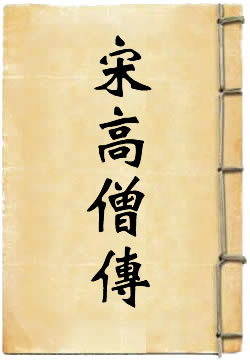 宋高僧傳